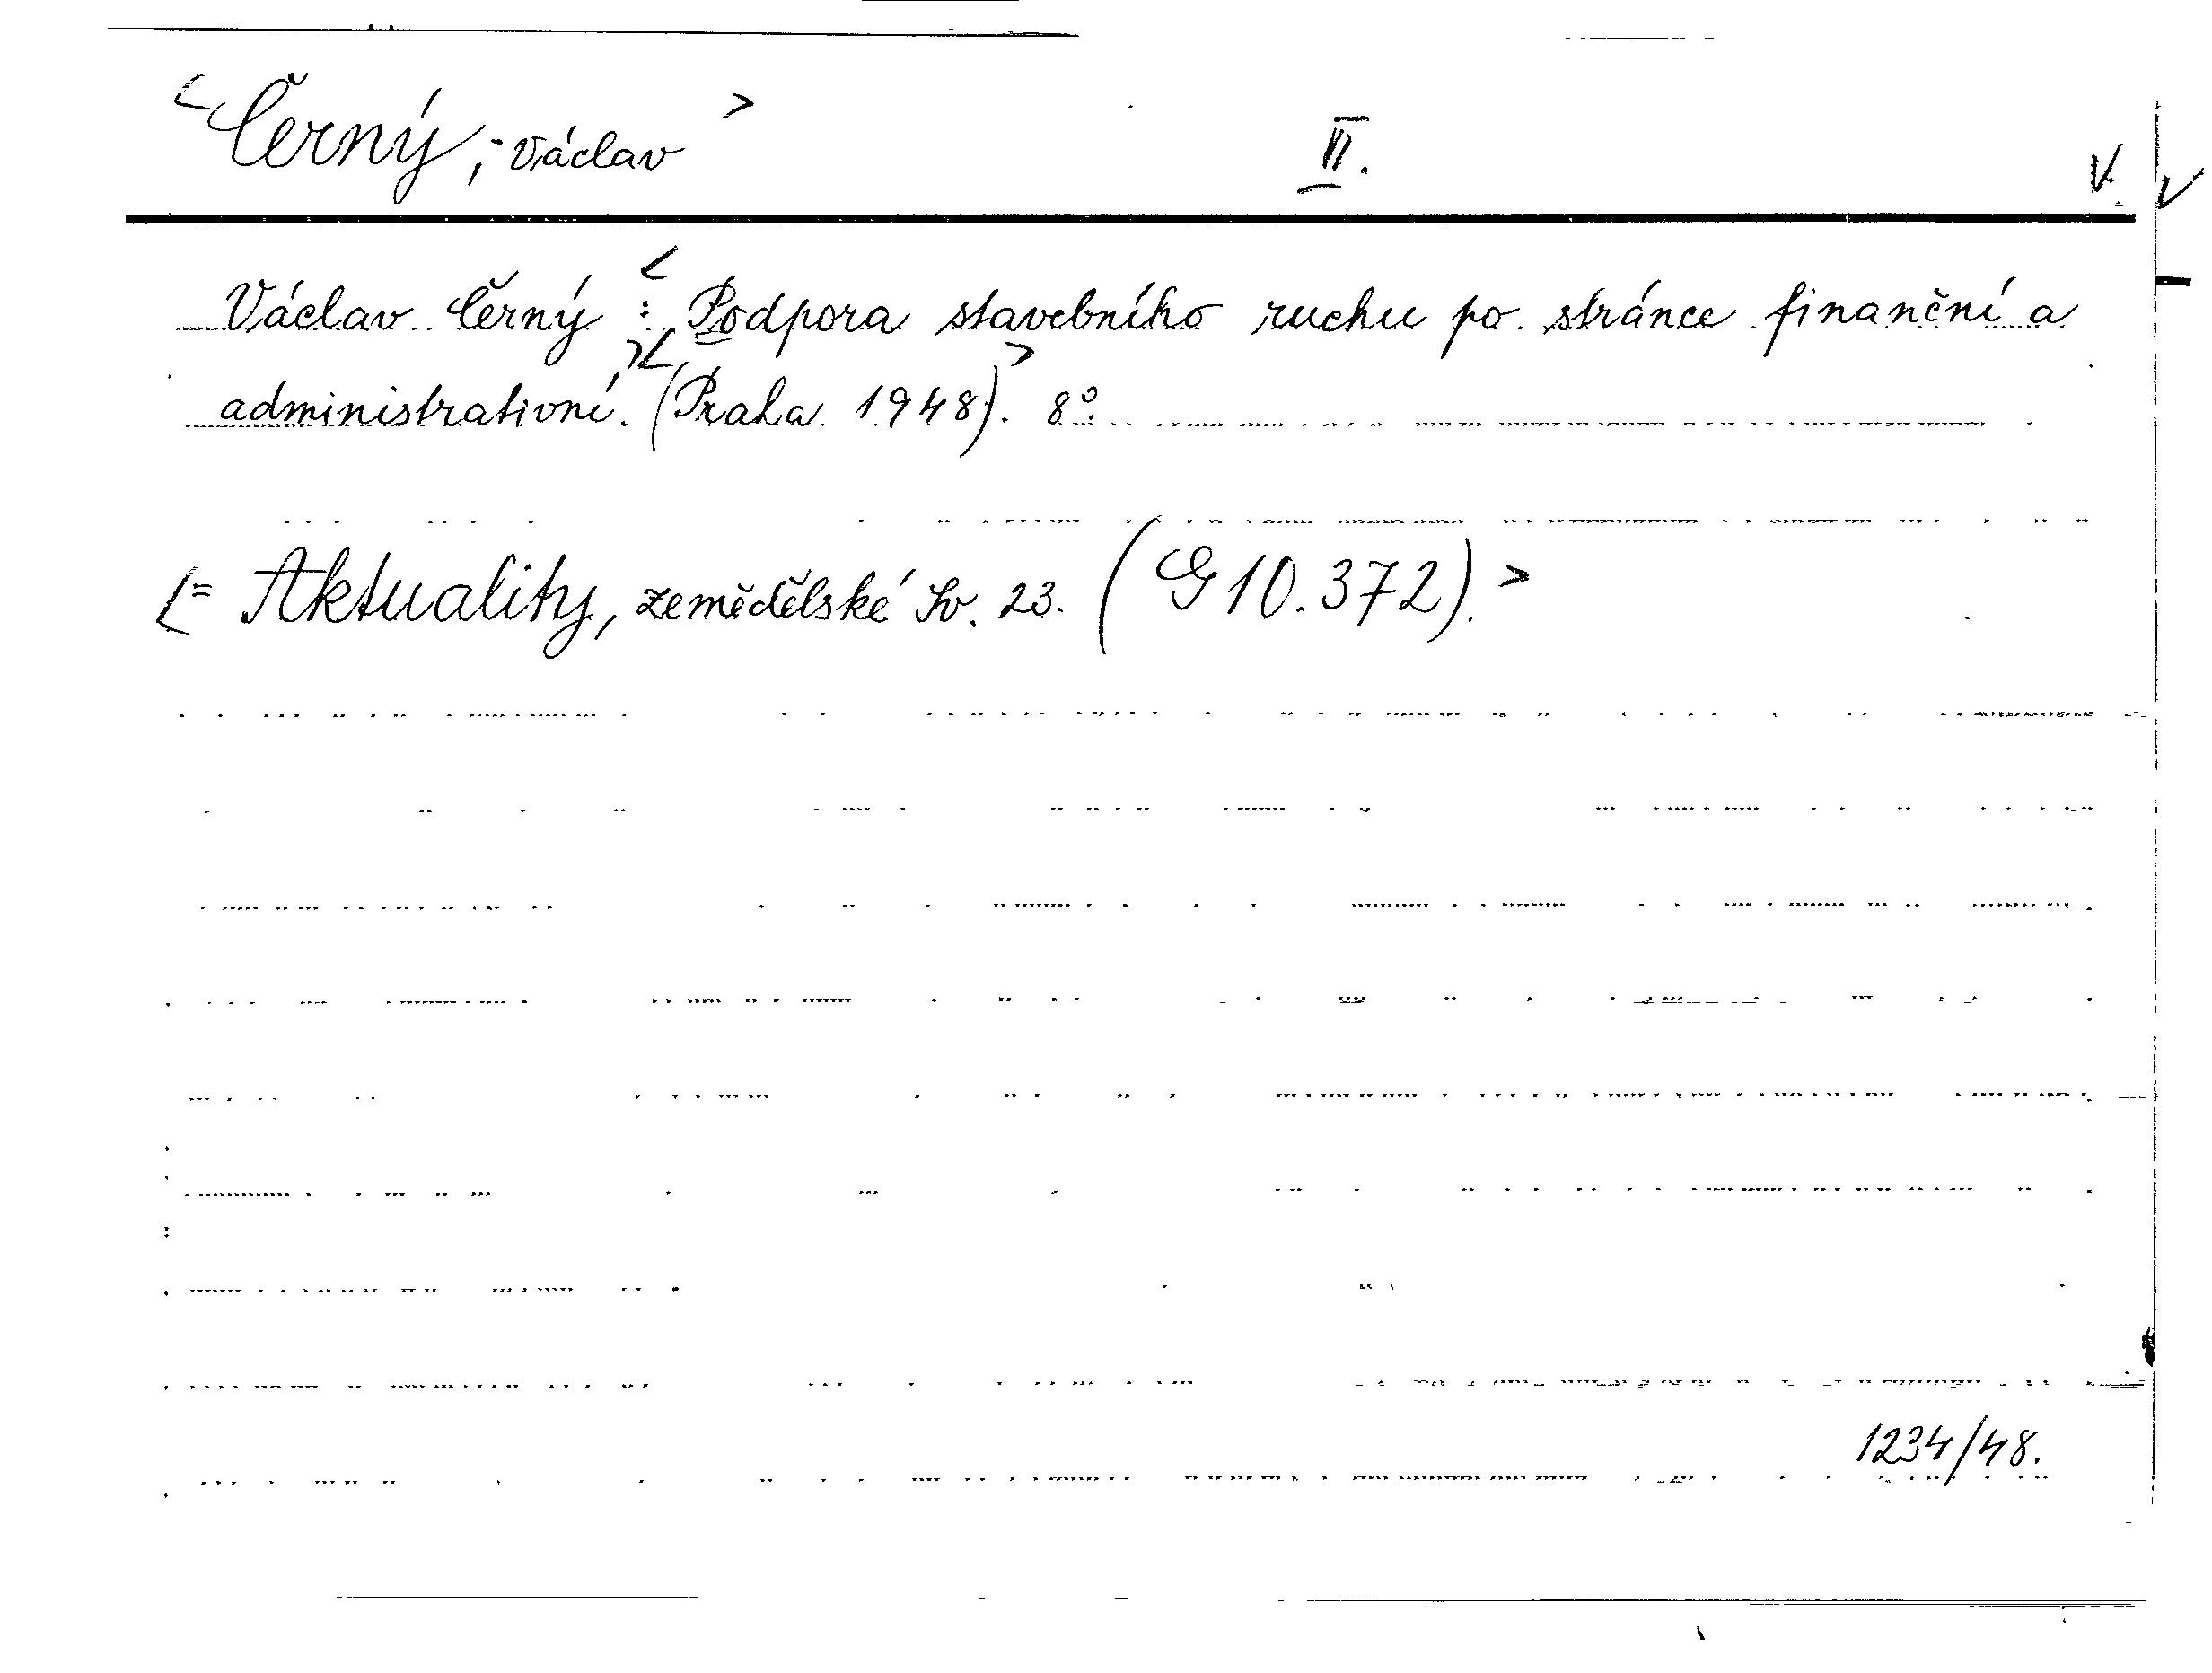 <Černý, Václav> II. V. V
Václav Černý : <Podpora stavebního ruchu po stránce finanční a
administrativní.>< (Praha 1948).> 8°.
<= Aktuality, zemědělské Sv. 23. (G 10.372).>
1234/48.